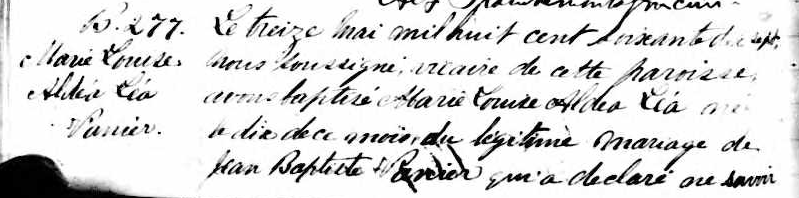 B. 277.
Marie Louise
Aldéa Léa
Panier.
Le treize Mai mil huit cent soixante dix sept,
nous soussigné, vicaire de cette paroisse,
avons baptisé Marie Louise Aldea Léa née
le dix de ce mois, du légitime mariage de
Jean Baptiste Panier qui a declaré ne savoir